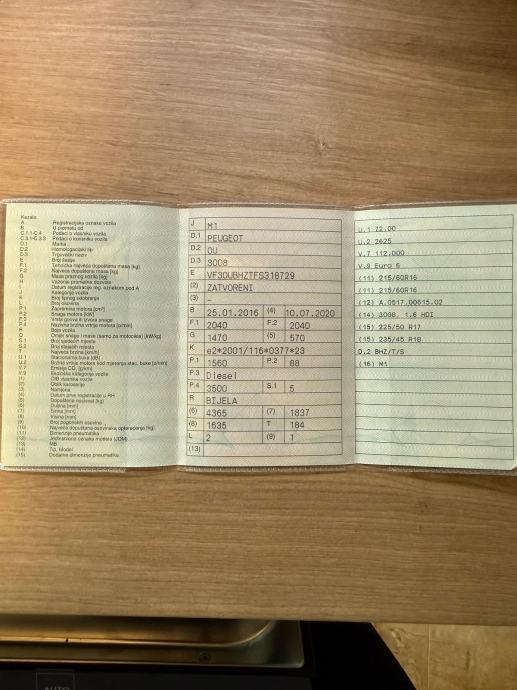 Kazalo:
A Registracijska oznaka vozila
B U prometu od
C.1.1-C.4 Podaci o vlasniku vozila
C.3.1-C.3.3 Podaci o korisniku vozila
D.1 Marka
D.2 Homologacijski tip
D.3 Trgovački naziv
E Broj šasije
F.1 Tehnička najveća dopuštena masa [kg]
F.2 Najveća dopuštena masa [kg]
G Masa praznog vozila [kg]
H Važenje prometne dozvole
I Datum registracije reg. oznakom pod A
J Kategorija vozila
K Broj tipnog odobrenja
L Broj osovina
P.1 Zapremina motora [cm³]
P.2 Snaga motora [kW]
P.3 Vrsta goriva ili izvora snage
P.4 Nazivna brzina vrtnje motora [o/min]
R Boja vozila
Q Omjer snage i mase (samo za motocikle) [kW/kg]
S.1 Broj sjedećih mjesta
S.2 Broj stajaćih mjesta
T Najveća brzina [km/h]
U.1 Stacionarna buka [dB]
U.2 Brzina vrtnje motora kod mjerenja stac. buke [o/min]
V.7 Emisija CO₂ [g/km]
V.9 Ekološka kategorija vozila
(1) OIB vlasnika vozila
(2) Oblik karoserije
(3) Namjena
(4) Datum prve registracije u RH
(5) Dopuštena nosivost [kg]
(6) Duljina [mm]
(7) Širina [mm]
(8) Visina [mm]
(9) Broj pogonskih osovina
(10) Najveće dopušteno osovinsko opterećenje [kg]
(11) Dimenzije pneumatika
(12) Jednostavna oznaka motora (JOM)
(13) MB
(14) Tip, Model
(15) Dodatne dimenzije pneumatika
J M1
D.1 PEUGEOT
D.2 0U
D.3 3008
E VF30UBHZTFS318729
(2) ZATVORENI
(3) -
B 25.01.2016 (4) 10.07.2020
F.1 2040 F.2 2040
G 1470 (5) 570
K e2*2001/116*0377*23
P.1 1560 P.2 88
P.3 Diesel
P.4 3500 S.1 5
R BIJELA
(6) 4365 (7) 1837
(8) 1635 T 184
L 2 (9) 1
(13)
U.1 72.00
U.2 2625
V.7 112.000
V.9 Euro 6
(11) 215/60R16
(11) 215/60R16
(12) A.0517.00615.02
(14) 3008, 1.6 HDI
(15) 225/50 R17
(15) 235/45 R18
D.2 BHZ/T/S
(16) M1